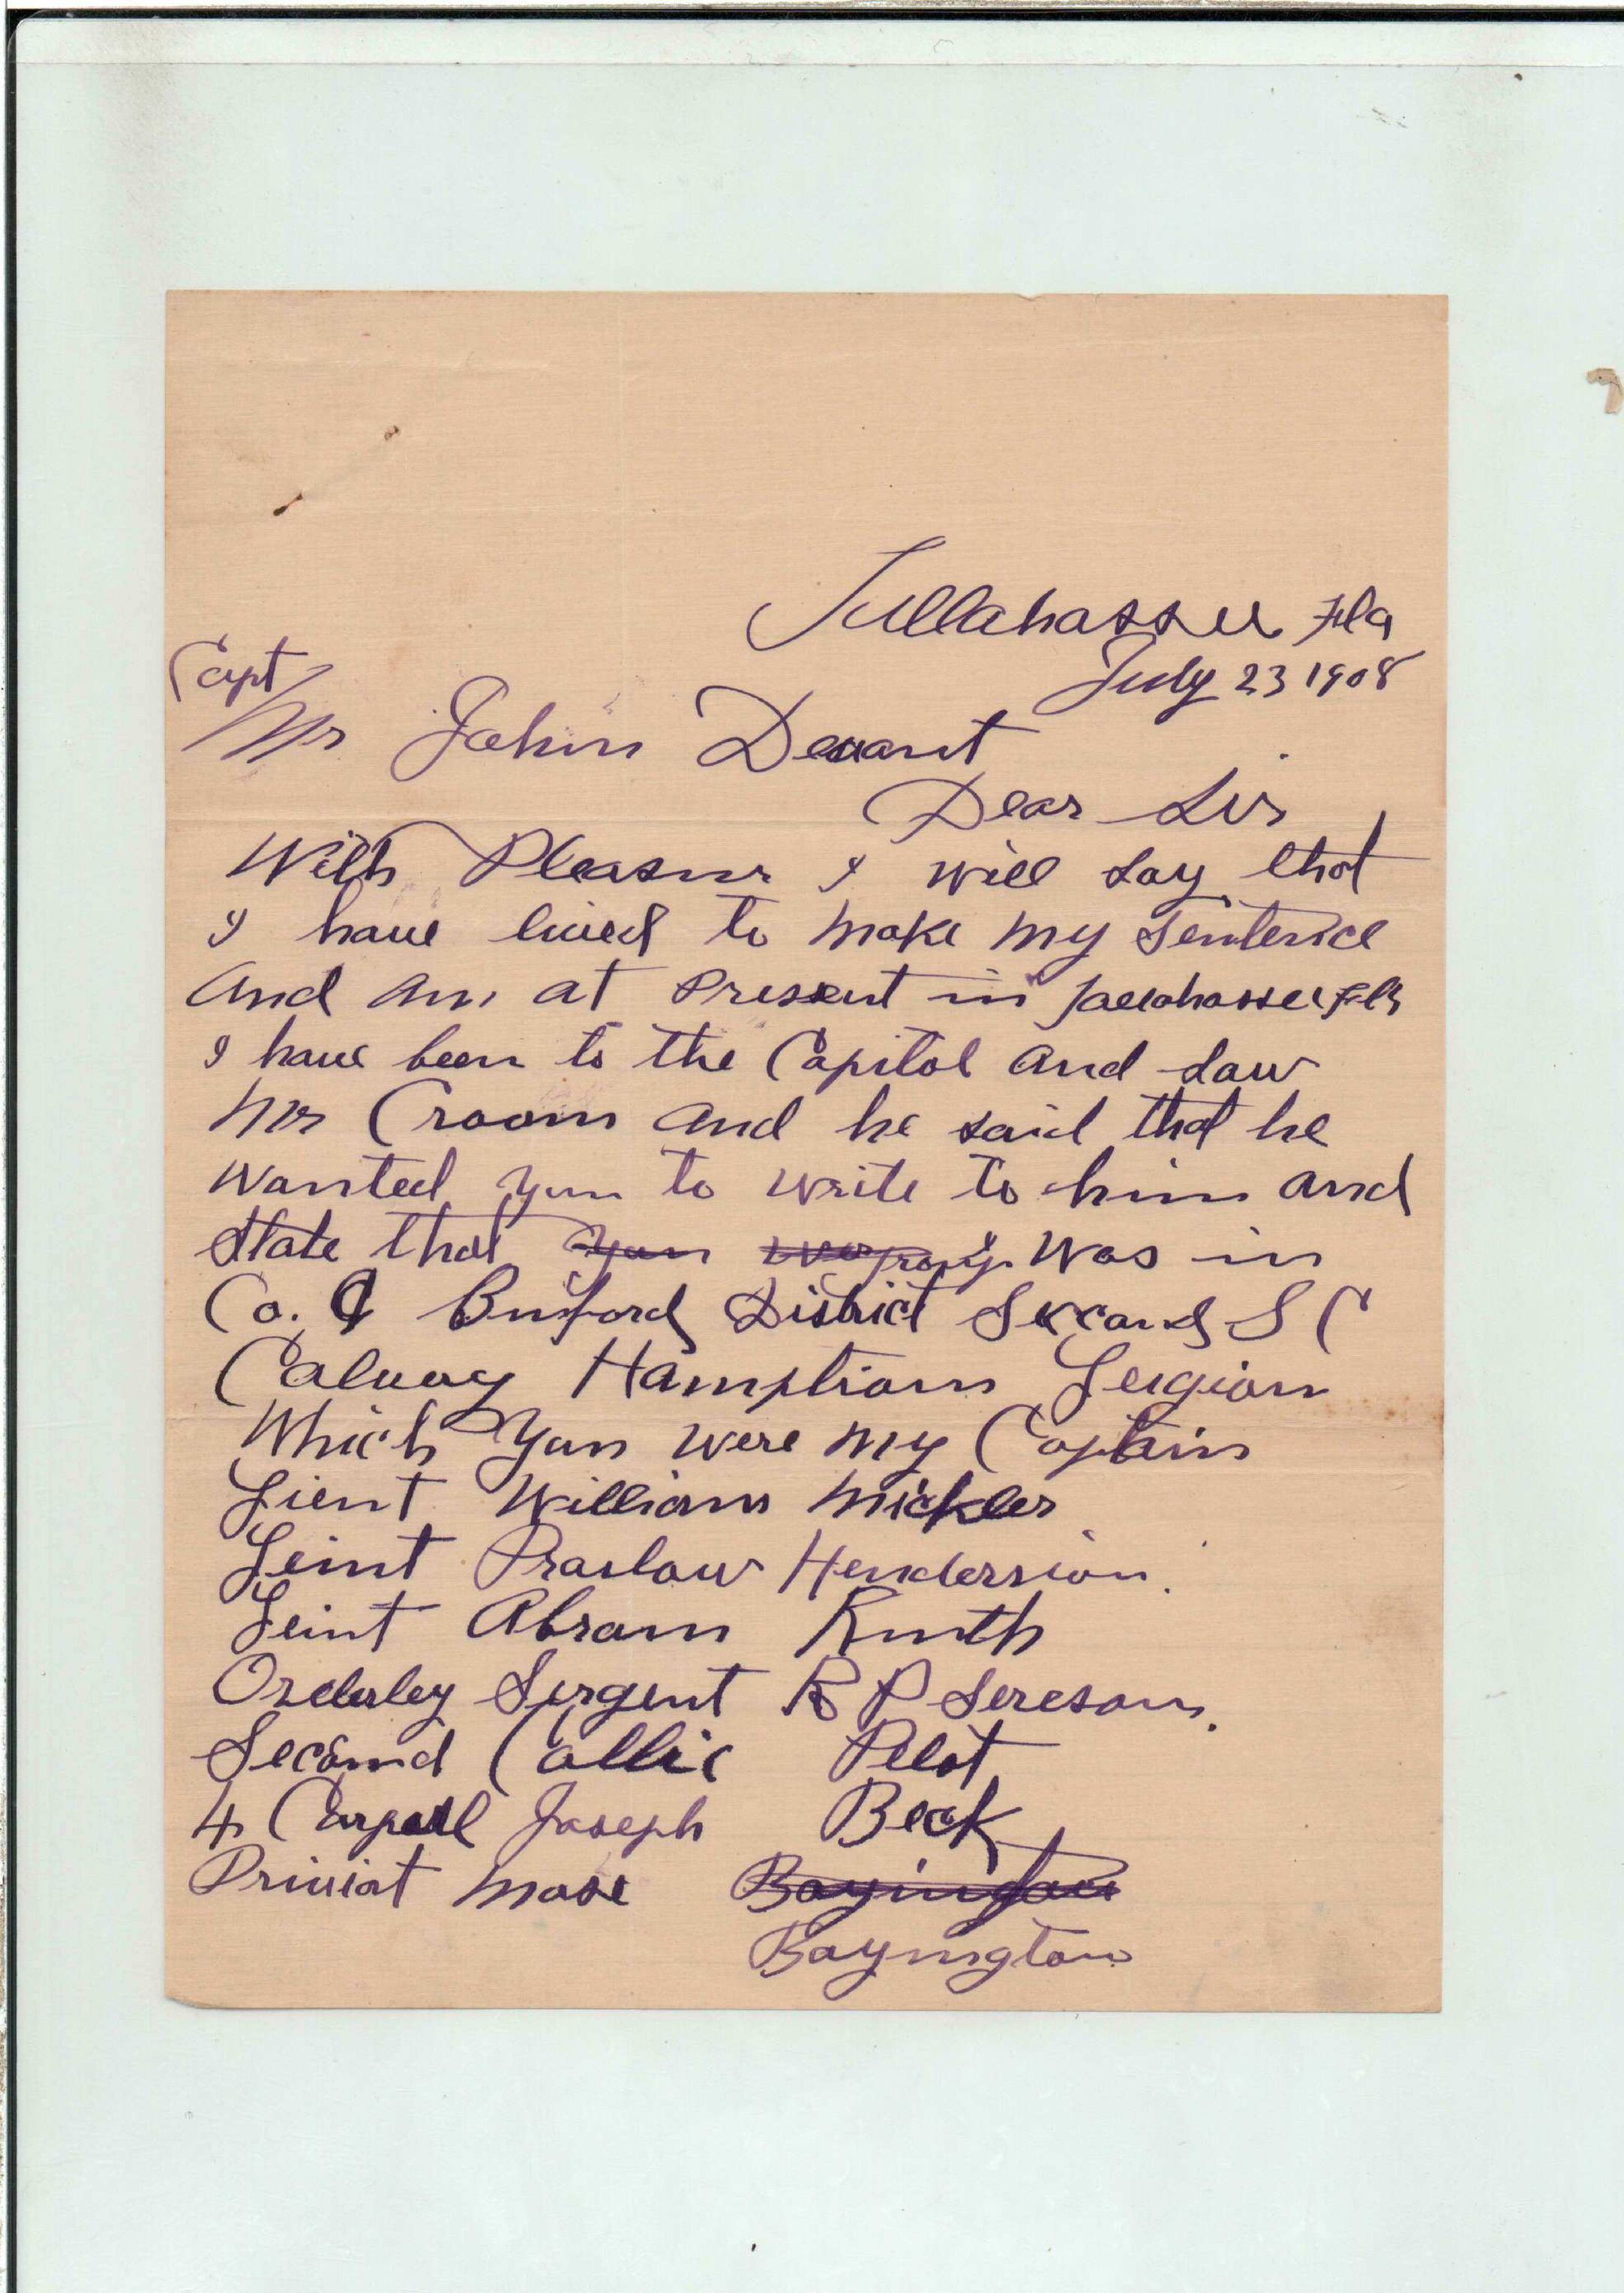 Tullahassee Fla
July 23 1908
Capt
Mr Johin Devant
Dear Sir
With Pleasur I will say that
I have lived to make my Sentence
And Am at Present in Tallahassee Fla
I have been to the Capitol And Saw
Mr Croom And he said that he
Wanted you to write to him And
State that you I Was in
Co. C Buford District Second S C
Calvary Hamptiom Leigion
Which you were my Captain
Lient William Mickler
Leint Henderson.
Leint Abram Ruuth
Orderley Sergent R P Sereson.
Second Collic Pelot
4 Joseph Beck
Priviat Mose Boyington
Boyington